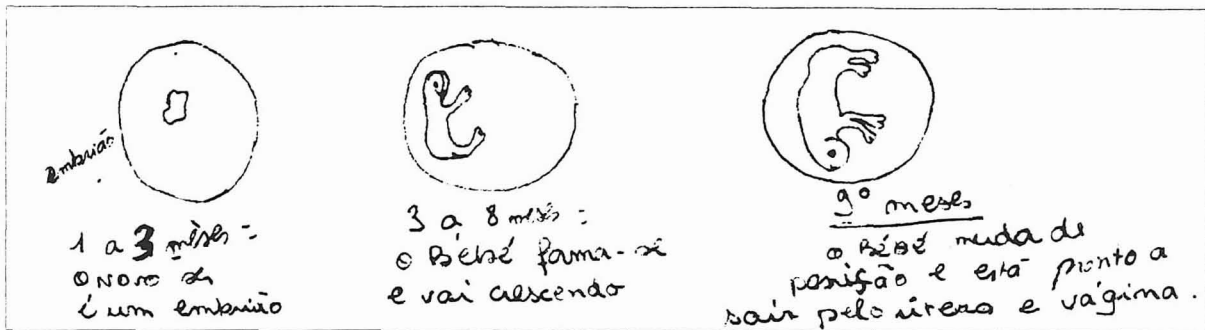 embrião
1 a 3 mêses =
O novo ser
é um embrião
3 a 8 mêses =
O Bébé forma-se
e vai crescendo
9º meses
O BÉBÉ muda de
posição e está pronto a
sair pelo útero e vágina.